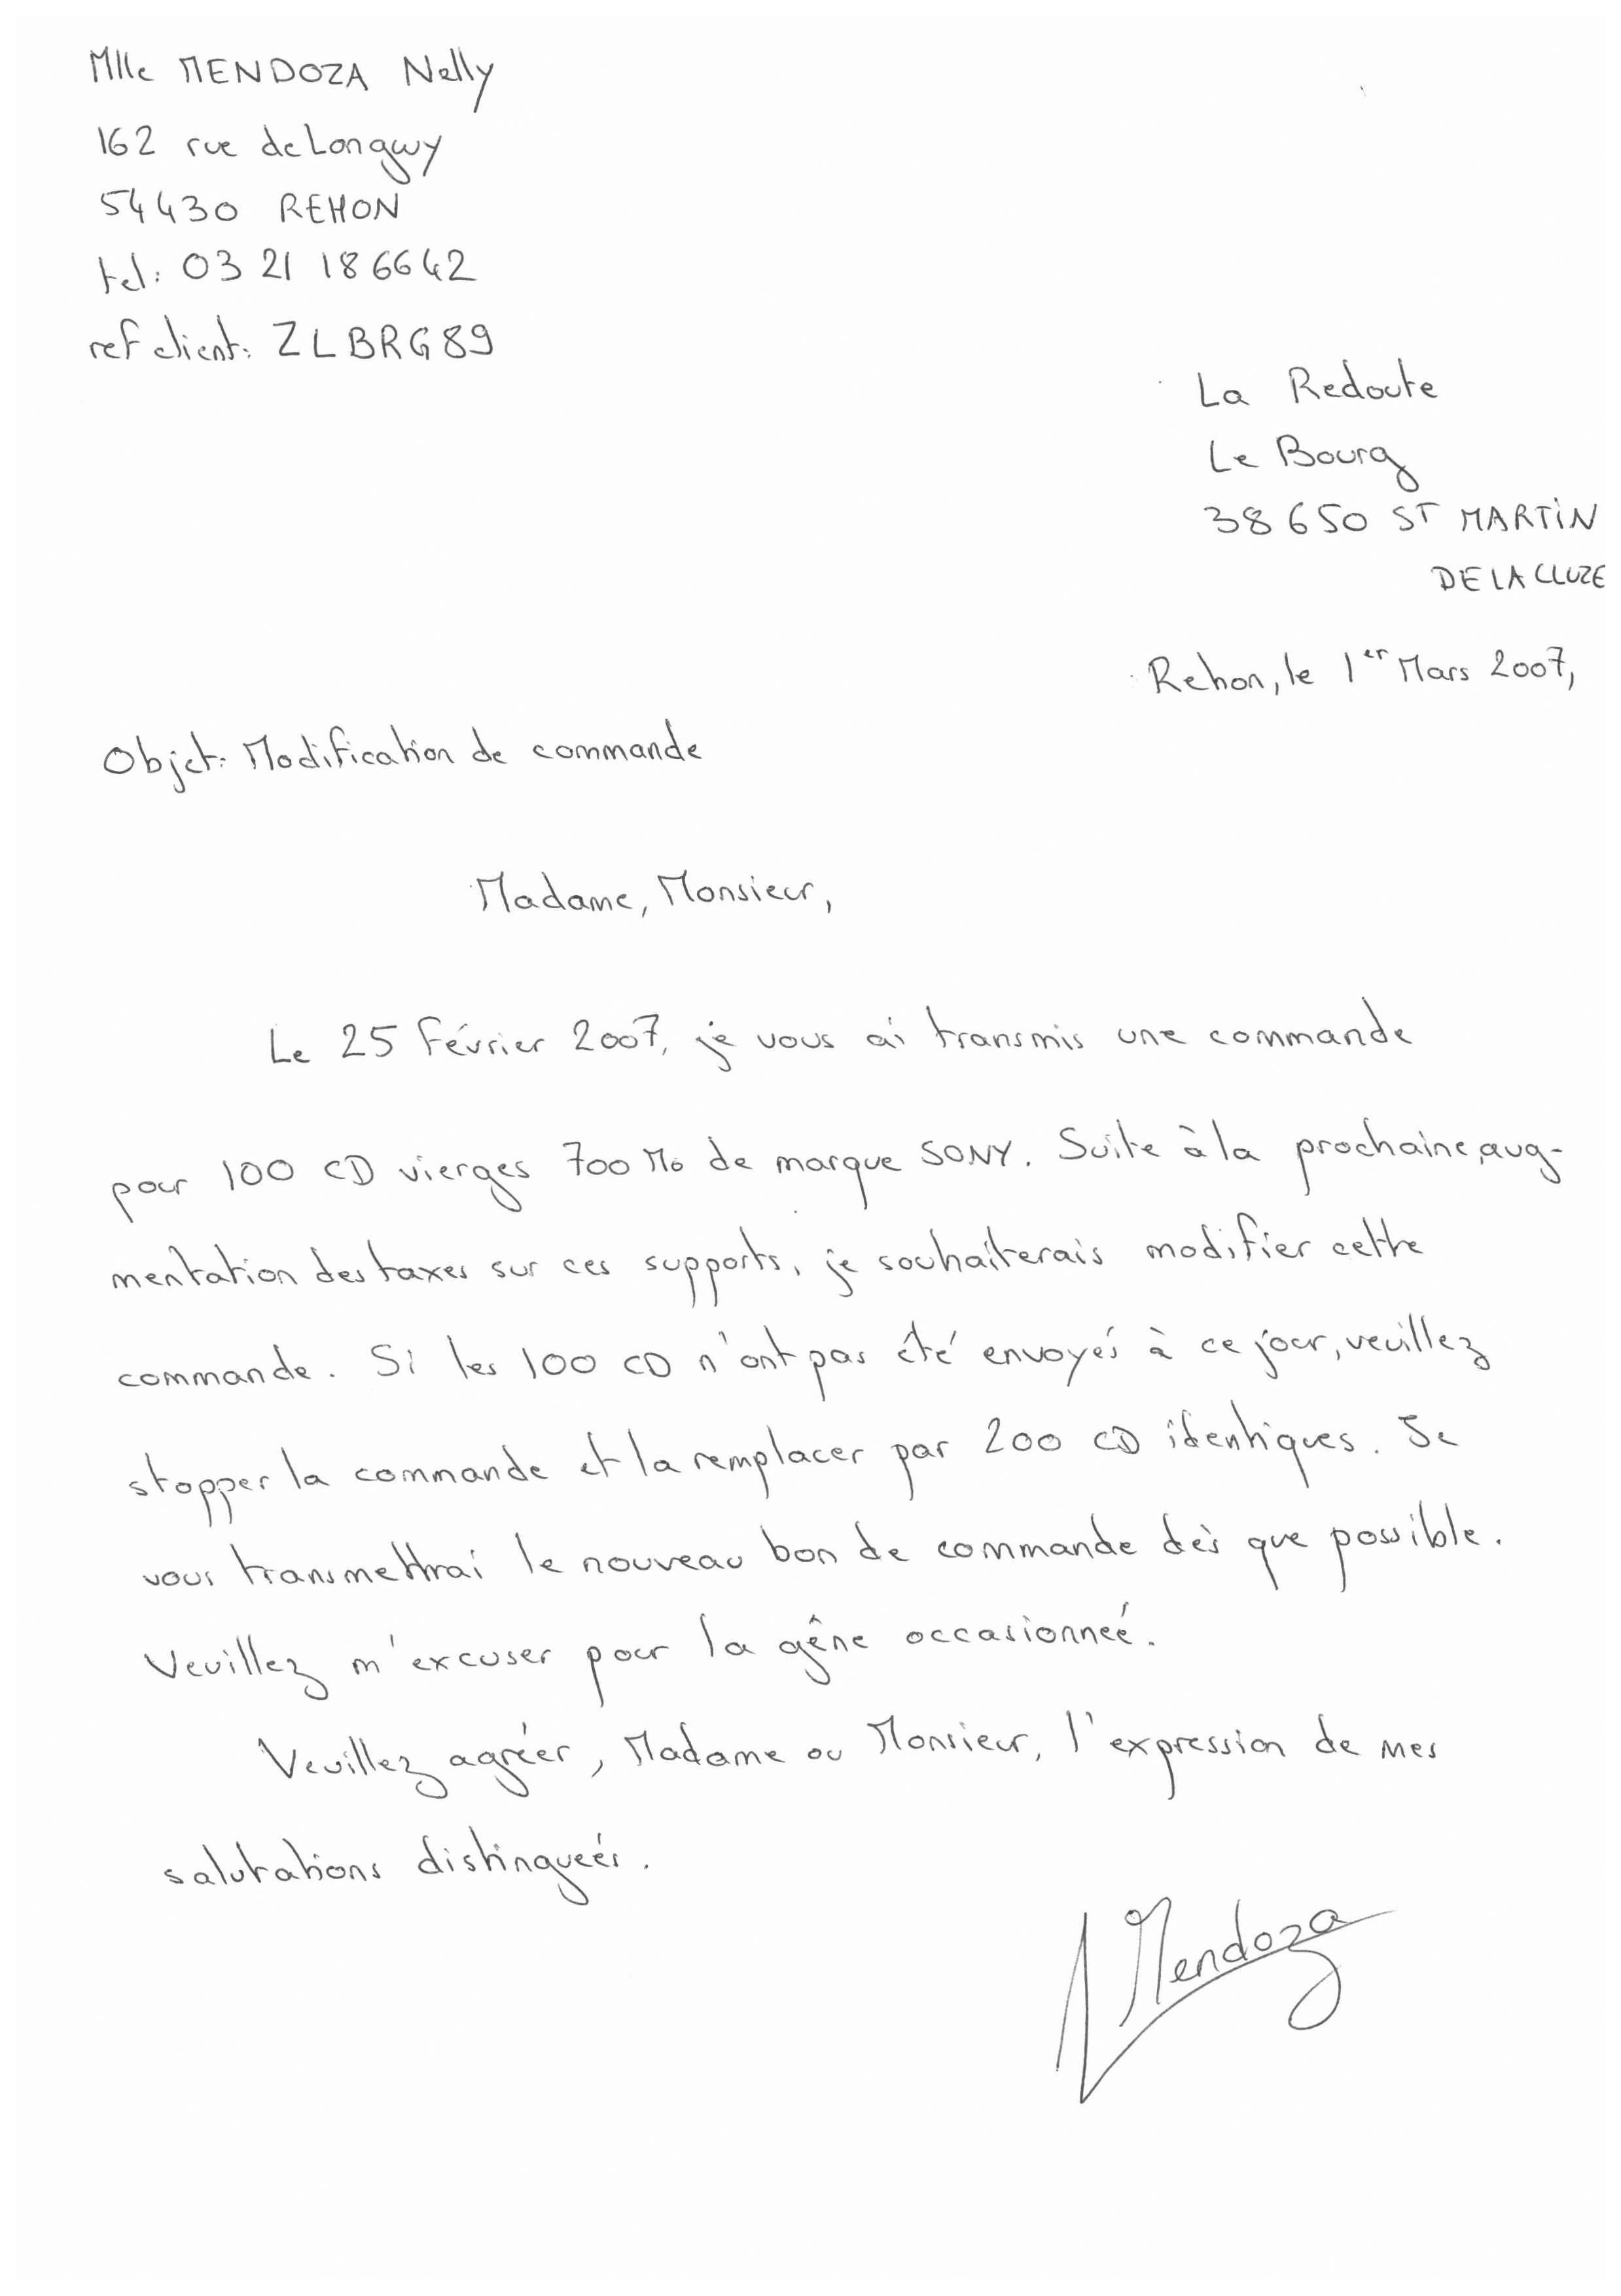 Mlle MENDOZA Nelly
162 rue de Longwy
54430 REHON
tel: 03 21 18 66 42
ref client: ZLBRG89
La Redoute
Le Bourg
38650 ST MARTIN
DE LA CLUZE
Rehon, le 1er Mars 2007,
Objet: Modification de commande
Madame, Monsieur,
Le 25 février 2007, je vous ai transmis une commande
pour 100 CD vierges 700 Mo de marque SONY. Suite à la prochaine aug-
mentation des taxes sur ces supports, je souhaiterais modifier cette
commande. Si les 100 CD n'ont pas été envoyés à ce jour, veuillez
stopper la commande et la remplacer par 200 CD identiques. Je
vous transmettrai le nouveau bon de commande dès que possible.
Veuillez m'excuser pour la gêne occasionneé.
Veuillez agréer, Madame ou Monsieur, l'expression de mes
salutations distingueés.
Mendoza